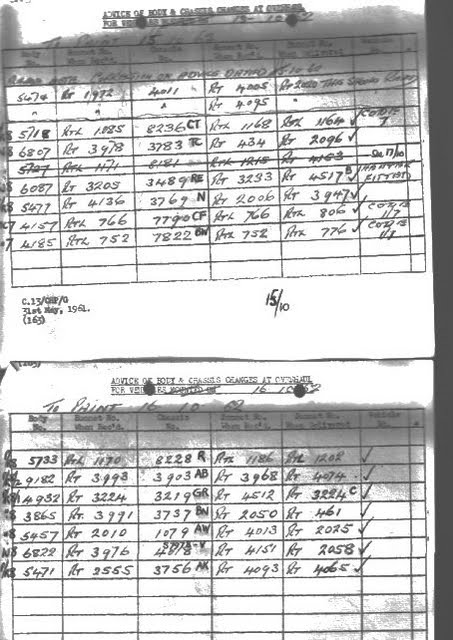 ADVICE OF BODY & CHASSIS CHANGES AT OVERHAUL
FOR
TO PAINT 15 10 62
Body No. Bonnet No. When Rec'd. Chassis No. Bonnet No. When Rec'd. Bonnet No. When Delivered Vehicle No.
5474 RT 1972 4011 RT 4005 RT 2050
" " " RT 4095
5718 RTL 1085 8236 CT RTL 1168 RTL 1164 ✓
6807 RT 3978 3783 TC RT 434 RT 2096 ✓
5727 RTL 1171 8181 RTL 1215 RTL 1153
6087 RT 3205 3489 RE RT 3233 RT 4517 B ✓
5477 RT 4136 3769 N RT 2006 RT 3947 ✓
4157 RTL 766 7790 CF RTL 766 RTL 806 ✓
4185 RTL 752 7822 RTL 752 RTL 776 ✓
C.13/OHP/O
31st May, 1961.
(163)
15/10
ADVICE OF BODY & CHASSIS CHANGES AT OVERHAUL
FOR 16 10 62
TO PAINT 16 10 62
Body No. Bonnet No. When Rec'd. Chassis No. Bonnet No. When Rec'd. Bonnet No. When Delivered Vehicle No.
5733 RTL 1170 8228 R RTL 1186 RTL 1202 ✓
9182 RT 3993 3903 AB RT 3968 RT 4074 ✓
4932 RT 3224 3219 GR RT 4512 RT 3224 C ✓
3865 RT 3991 3737 BN RT 2050 RT 461 ✓
5457 RT 2010 1079 AW RT 4013 RT 2025 ✓
6822 RT 3976 RT 4151 RT 2058 ✓
5471 RT 2555 3756 AK RT 4093 RT 4065 ✓